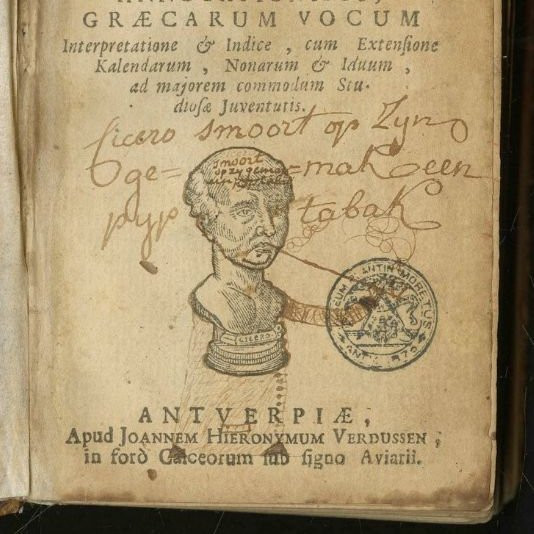 GRÆCARUM VOCUM
Interpretatione & Indice , cum Extenſione
Kalendarum , Nonarum & Iduum ,
ad majorem commodum Stu-
dioſæ Juventutis.
Cicero smoort op Zyn
ge= =mak een
pyp tabak
smoort
op zy gemak
een pyp tabak
CICERO
ANTVERPIÆ,
Apud JOANNEM HIERONYMUM VERDUSSEN ,
in foro Calceorum ſub ſigno Aviarii.